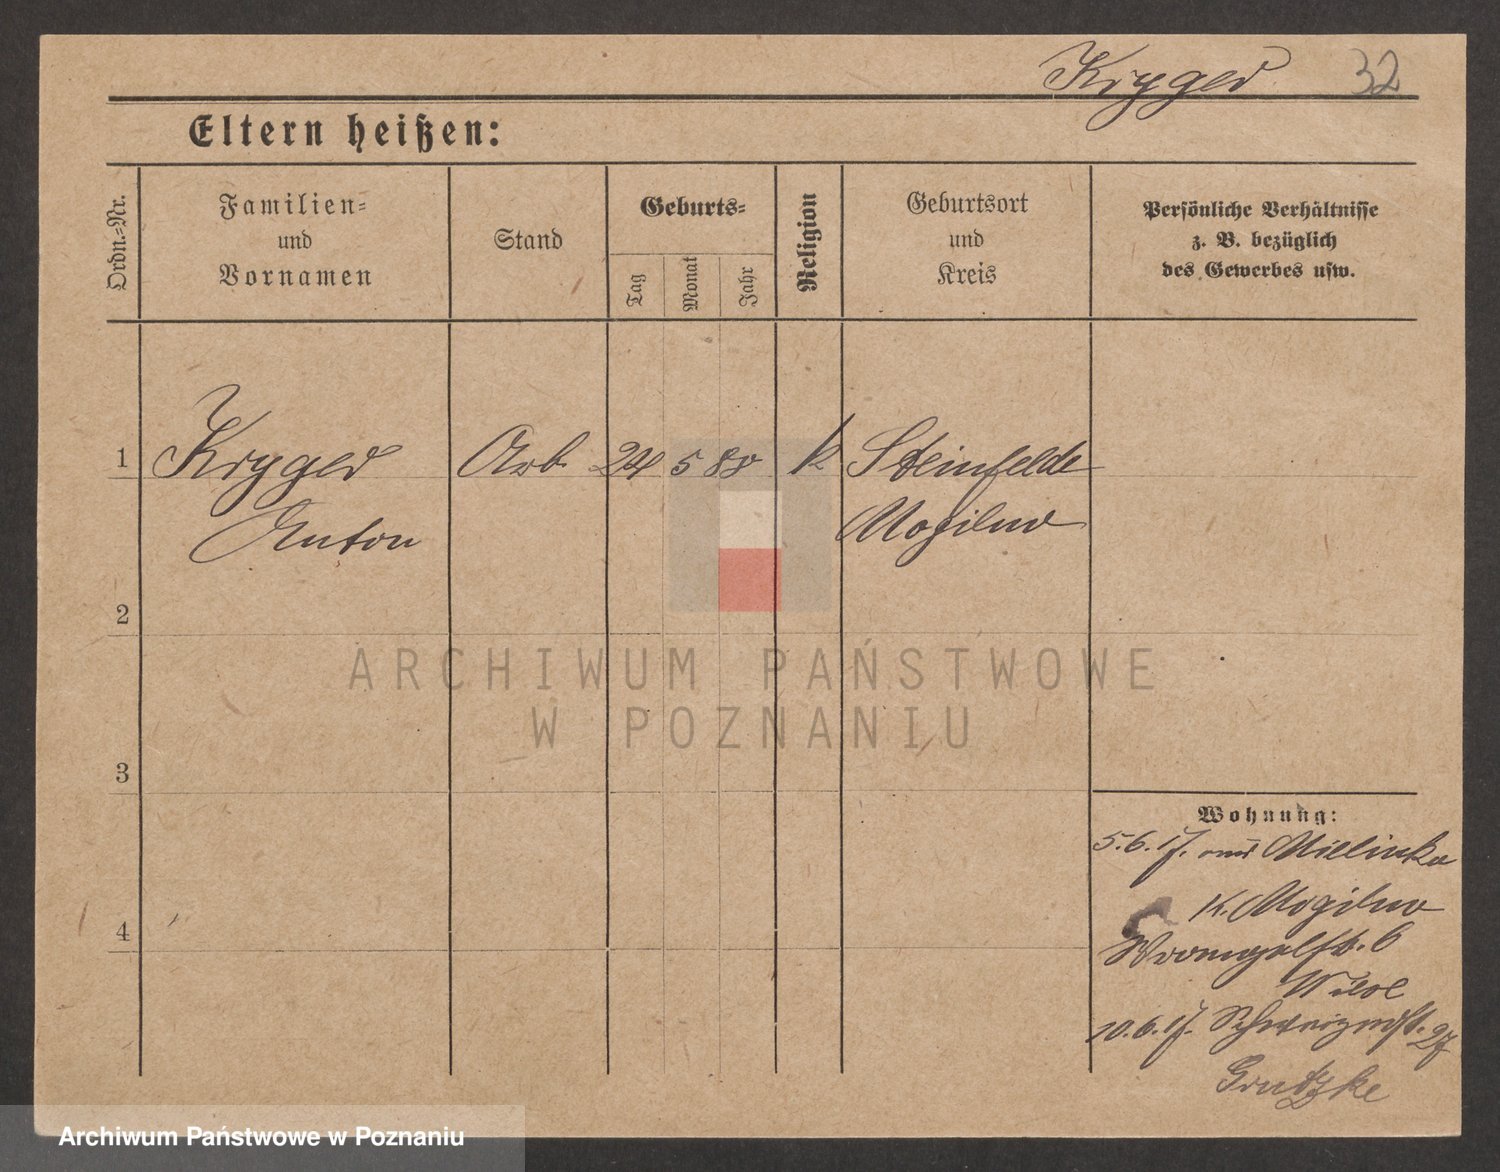 Kryger 32
Eltern heißen:
Ordn.-Nr.
Familien-
und
Vornamen
Stand
Geburts-
Tag
Monat
Jahr
Religion
Geburtsort
und
Kreis
Persönliche Verhältnisse
z. B. bezüglich
des Gewerbes usw.
1 Kryger Arb. 24 5 88 k Steinfelde
Anton Mogilno
2
3
4
Wohnung:
5.6.17. aus Mielinko
K. Mogilno
Wrangelstr. 6
10.6.17. 27
Grutzke
ARCHIWUM PAŃSTWOWE
W POZNANIU
Archiwum Państwowe w Poznaniu